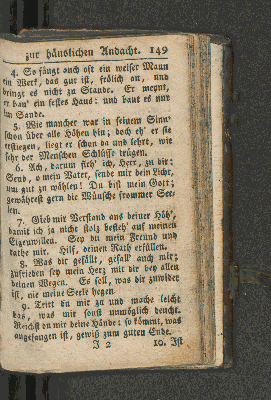 zur häuslichen Andacht. 149
4. So fängt auch oft ein weiser Mann
ein Werk, das gut ist, frölich an, und
bringt es nicht zu Stande. Er meynt,
er bau' ein festes Haus: und baut es nur
im Sande.
5. Wie mancher war in seinem Sinn'
schon über alle Höhen hin; doch eh' er sie
erstiegen, liegt er schon da und lehrt, wie
sehr der Menschen Schlüsse trügen.
6. Ach, darum fleh' ich, Herr, zu dir:
Send, o mein Vater, sende mir dein Licht,
um gut zu wählen! Du bist mein Gott;
gewährest gern die Wünsche frommer See-
len.
7. Gieb mir Verstand aus deiner Höh',
damit ich ja nicht stolz besteh' auf meinen
Eigenwillen. Sey du mein Freund und
rathe mir. Hilf, deinen Rath erfüllen.
8. Was dir gefällt, gefall' auch mir;
zufrieden sey mein Herz mit dir bey allen
deinen Wegen. Es soll, was dir zuwider
ist, nie meine Seele hegen.
9. Tritt du mir zu und mache leicht
das, was mir sonst unmöglich deucht.
Reichst du mir deine Hände: so kömmt, was
angefangen ist, gewiß zum guten Ende.
J 2 10. Ist